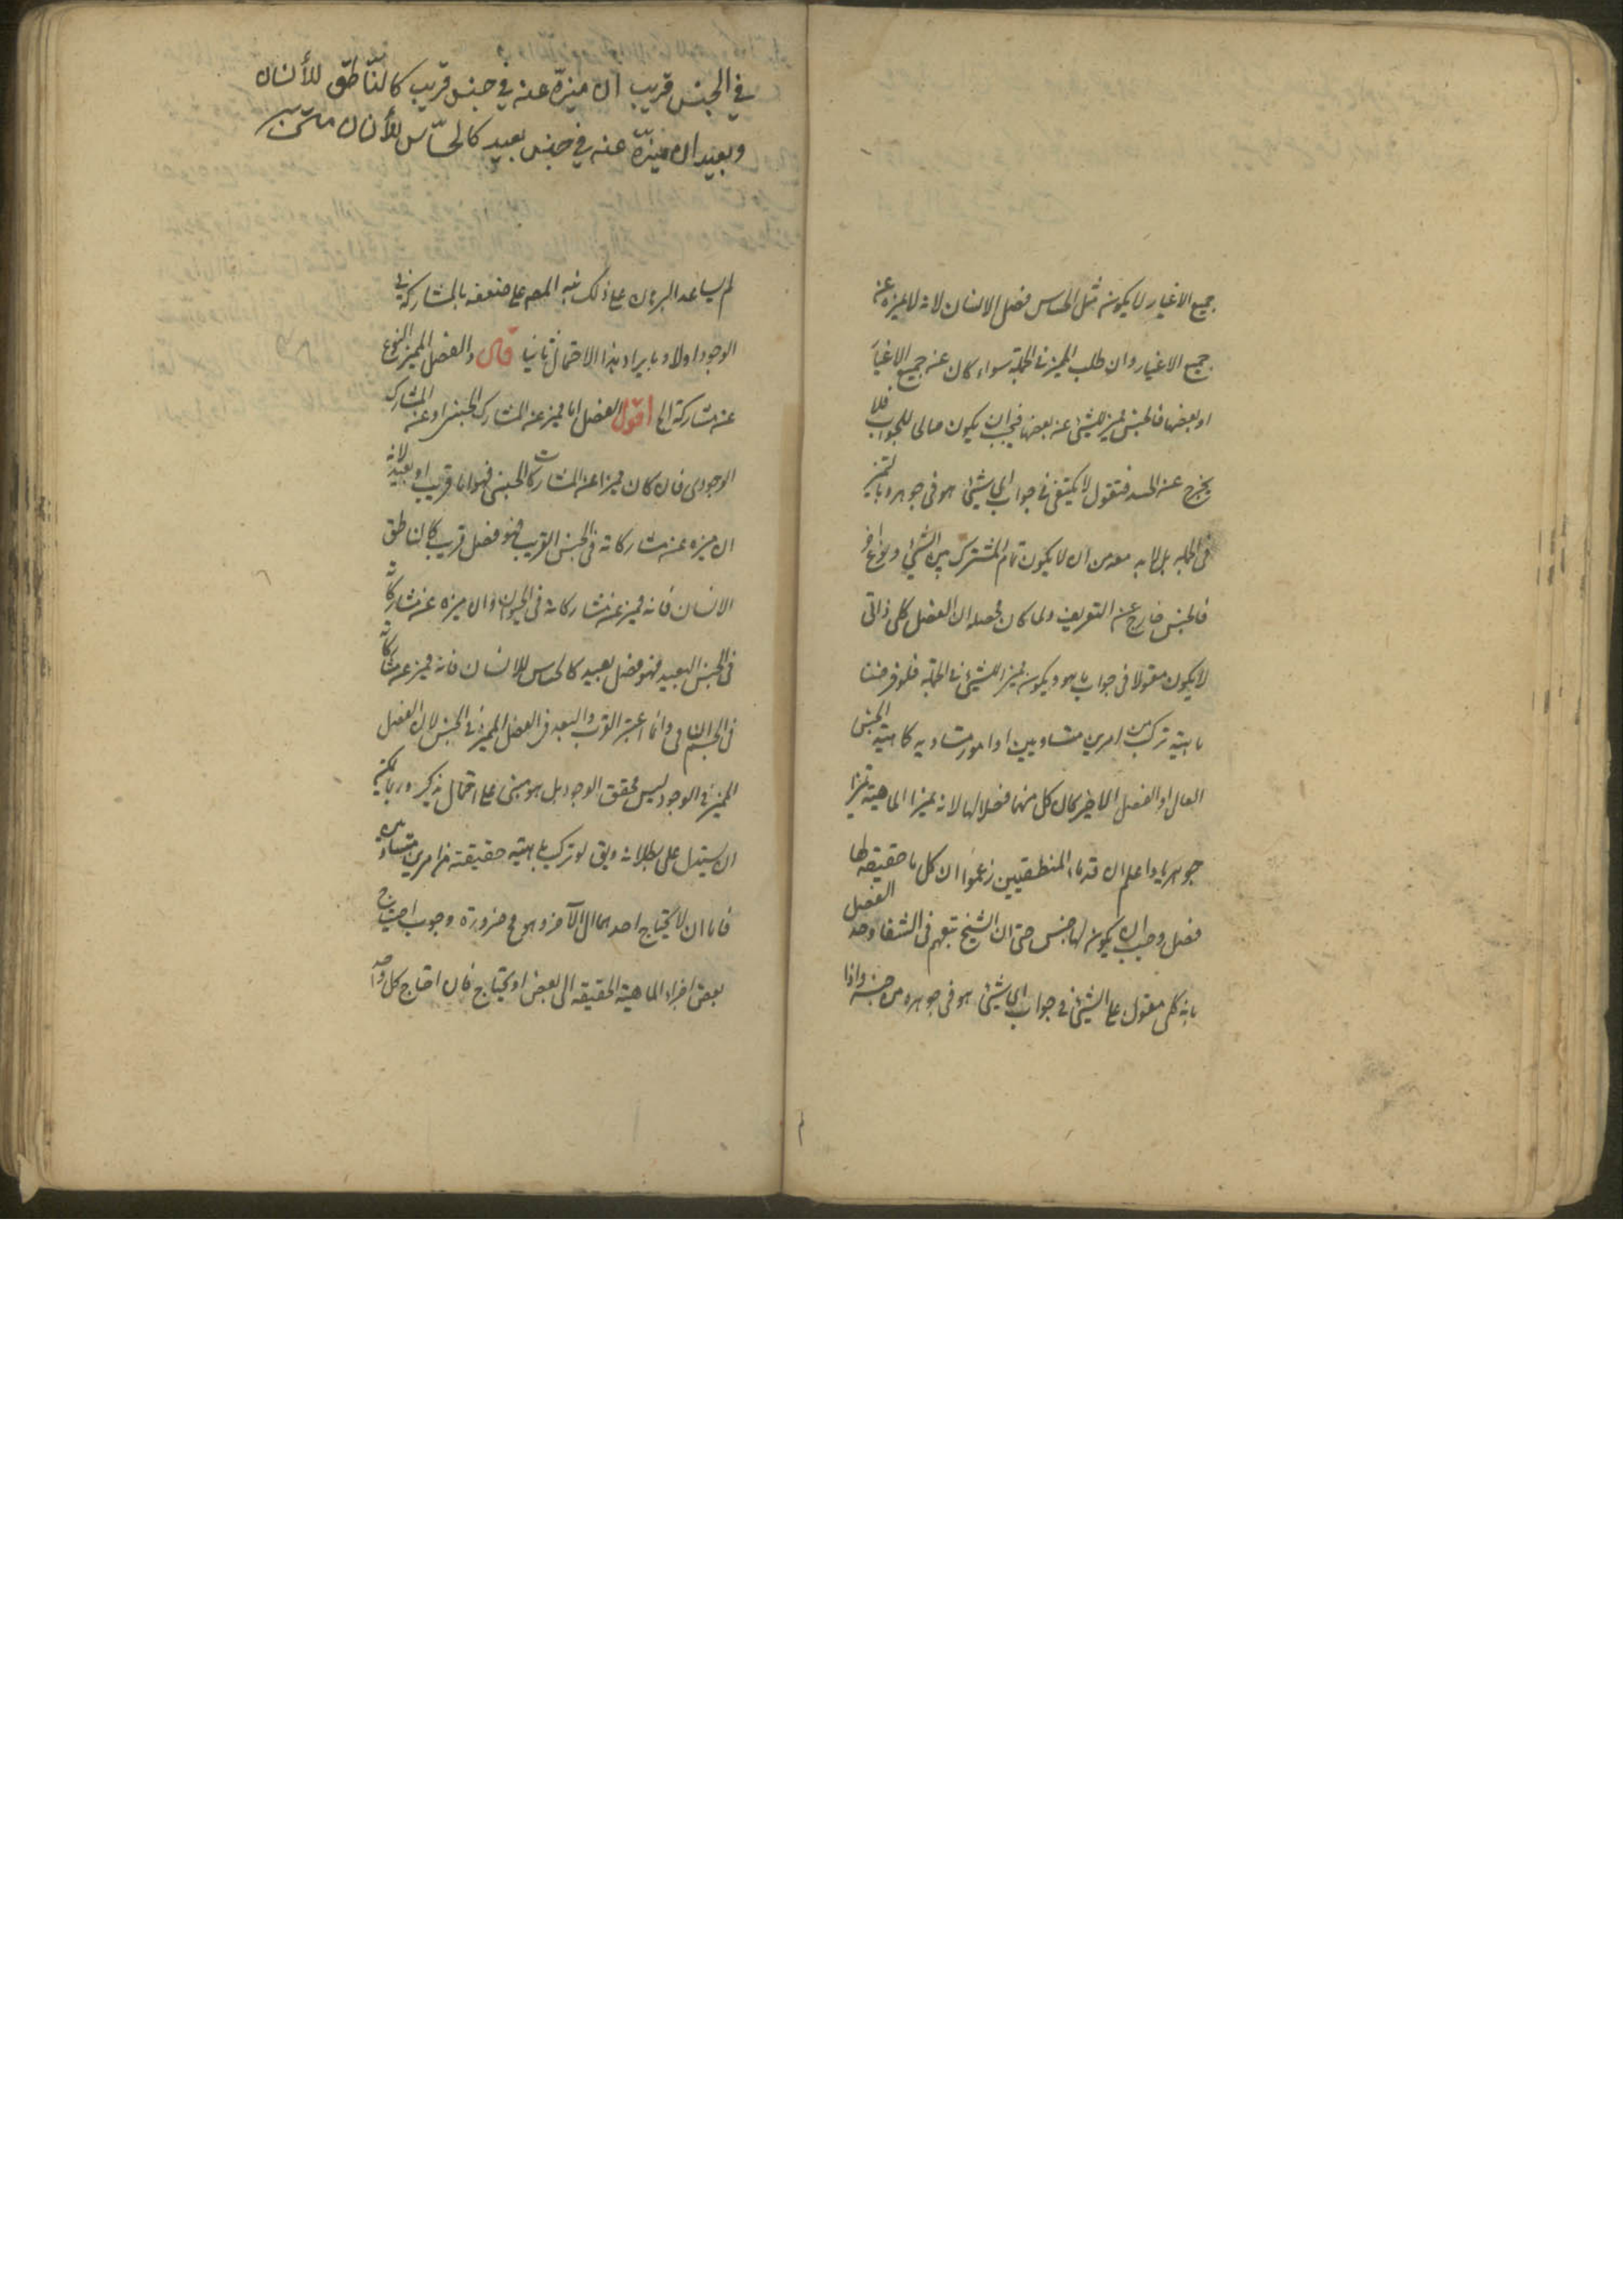 جميع الاغيار لا يكون مثل الحساس فصل الانسان لانه لا يميزه عن
جميع الاغيار وان طلب المميز في الجملة سواء كان عن جميع الاغيار
او بعضها فالجنس مميز للشئ عن بعضها فيجب ان يكون صالحا للجواب فلا
يخرج عن الحد فنقول لا يكتفى في جواب اى شئ هو فى جوهره بالتميز
فى الجملة بل لابد معه من ان لا يكون تمام المشترك بين الشئ ونوع آخر
فالجنس خارج عن التعريف ولما كان محصله ان الفصل كلى ذاتى
لا يكون مقولا فى جواب ما هو ويكون مميزا للشئ فى الجملة فلو فرضنا
ماهية تركب من امرين متساويين او امور متساوية كماهية الجنس
العالى او الفصل الاخير كان كل منها فصلا لها لانه يميز الماهية تميزا
جوهريا واعلم ان قدماء المنطقيين زعموا ان كل ماحقيقة لها
فصل وجب ان يكون لها جنس حتى ان الشيخ تبعهم فى الشفا وحد الفصل
بانه كلى مقول على الشئ فى جواب اى شئ هو فى جوهره من جنسه واذا
فى الجنس قريب ان ميزّه عنه فى جنس قريب كالنّاطق للأنسان
وبعيد ان ميزّه عنه فى جنس بعيد كالحسّاس للأنسان
لم يساعد البرهان على ذلك نبه المصم على ضعفه بالمشاركة فى
الوجود اولا وبايراد هذا الاحتمال ثانيا قال والفصل المميز للنوع
عن مشاركة الخ اقول الفصل اما مميز عن المشارك الجنسى او عن المشارك
الوجودى فان كان مميزا عن المشارك الجنسى فهو اما قريب او بعيد لانه
ان ميزه عن مشاركاته فى الجنس القريب فهو فصل قريب كالناطق
الانسان فانه مميز عن مشاركاته فى الحيوان وان ميزه عن مشاركاته
فى الجنس البعيد فهو فصل بعيد كالحساس للانسان فانه مميز عن مشاركاته
فى الجسم النامى وانما اعتبر القرب والبعد فى الفصل المميز فى الجنس لان الفصل
المميز فى الوجود ليس محقق الوجود بل هو مبنى على احتمال يذكر وربما يمكن
ان يستدل على بطلانه ويق لو تركب ماهية حقيقة من امرين متساويين
فاما ان لا يحتاج احدهما الى الآخر وهو مح ضرورة وجوب احتياج
بعض اجزاء الماهية الحقيقة الى بعض او يحتاج فان احتاج كل واحد